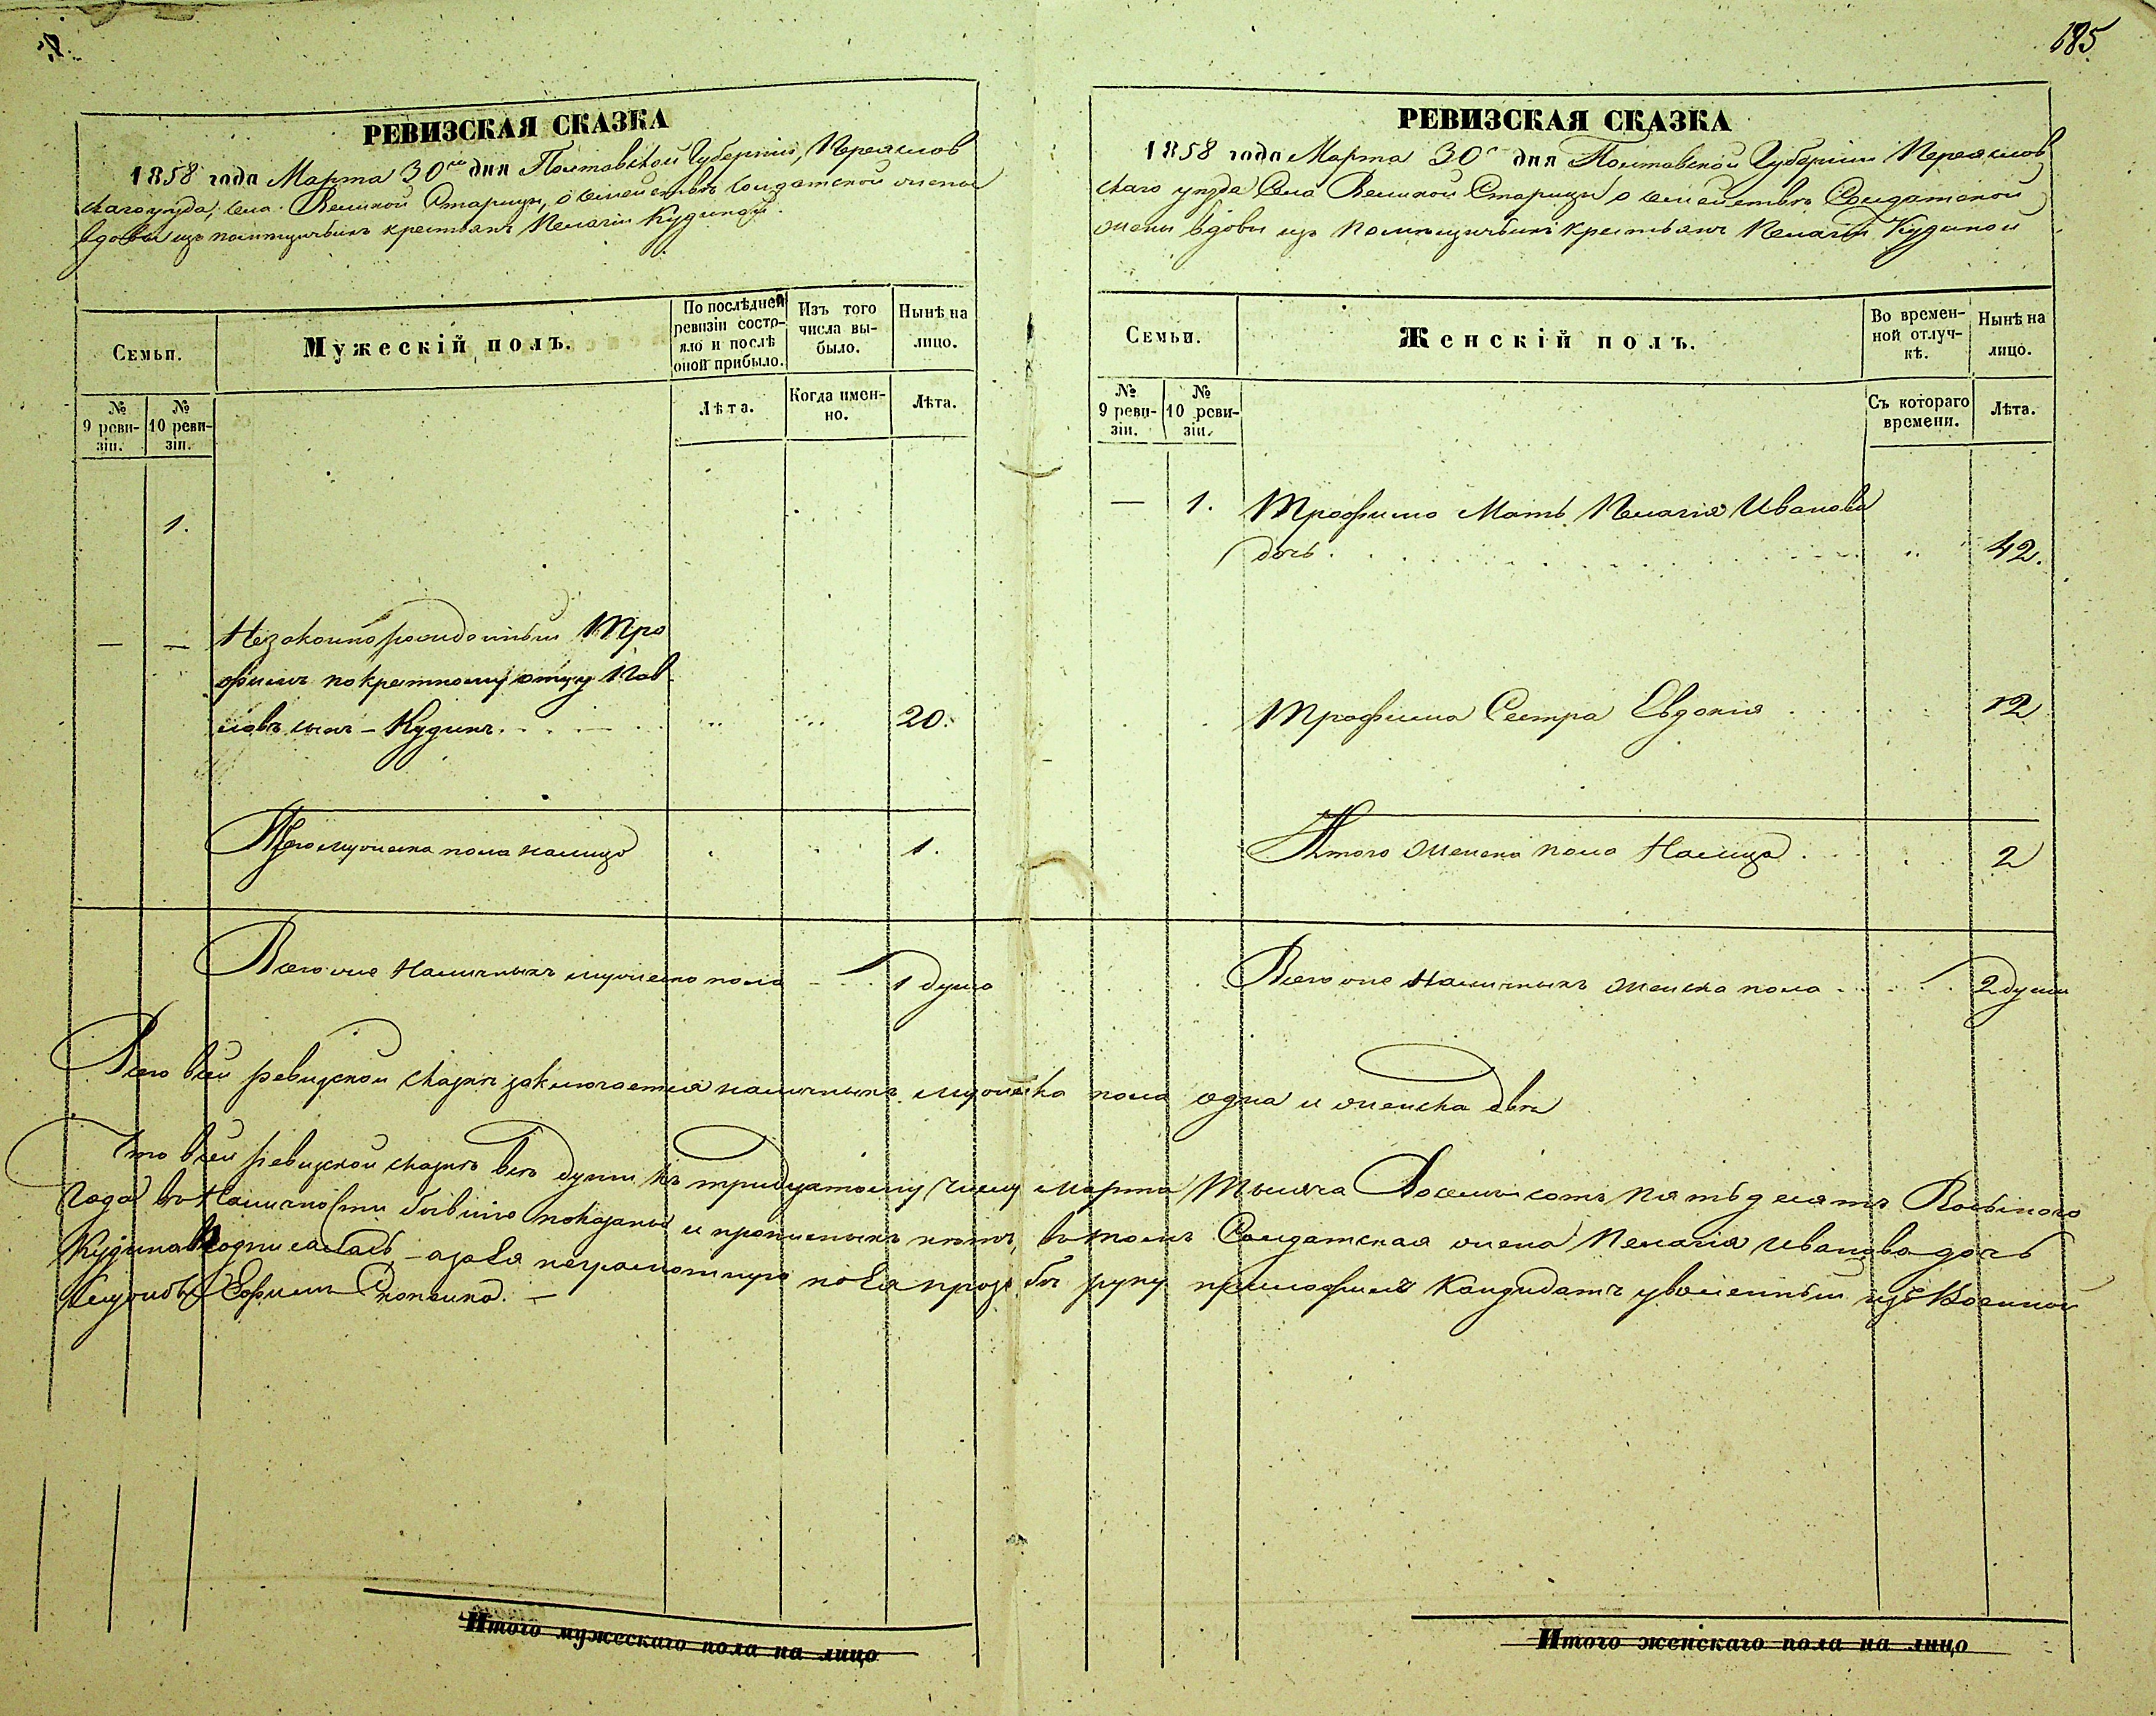 185
РЕВИЗСКАЯ СКАЗКА
1858 года Марта 30го дня Полтавской Губерніи, Переяслов
скаго уѣзда, села Великой Старицы, о семействѣ солдатской жены
вдовы изъ помѣщичьихъ крестьянъ Пелагіи Кудиной.
Семьи.
Мужескій полъ.
По послѣдней
ревизіи состо-
яло и послѣ
оной прибыло.
Изъ того
числа вы-
было.
Нынѣ на
лицо.
№
9 реви-
зіи.
№
10 реви-
зіи.
Лѣта.
Когда имен-
но.
Лѣта.
1.
— — Незаконнорожденный Тро
фимъ по крестному отцу Пав
ловъ сынъ - Кудинъ 20.
Итого мужеска пола налицо 1.
Всего же наличныхъ мужеска пола 1 душа
РЕВИЗСКАЯ СКАЗКА
1858 года Марта 30го дня Полтавской Губерніи Переяслов
скаго уѣзда Села Великой Старицы о семействѣ Солдатской
жены вдовы изъ помѣщичьихъ крестьянъ Пелагіи Кудиной
Семьи.
Женскій полъ.
Во времен-
ной отлуч-
кѣ.
Нынѣ на
лицо.
№
9 реви-
зіи.
№
10 реви-
зіи.
Съ котораго
времени.
Лѣта.
— 1. Трофима Мать Пелагія Иванова
дочь 42.
Трофима Сестра Евдокія 12
Итого женска пола налицо 2
Всего же наличныхъ женска пола 2 души
Всего въ сей ревизской сказкѣ заключается наличныхъ мужеска пола одна и женска двѣ
Что въ сей ревизской сказкѣ всѣ души къ тридцатому числу марта Тысяча Восемь сотъ пятьдесятъ Восьмого
Года въ наличности бывшіе показаны и прописныхъ нѣтъ, въ томъ Солдатская жена Пелагія Иванова дочь
Кудинова подписалась - а за Ея неграмотную по Ея прозьбѣ руку приложилъ Кандидатъ уволенный изъ Военной
Службы Ефимъ
Итого мужескаго пола на лицо
Итого женскаго пола на лицо